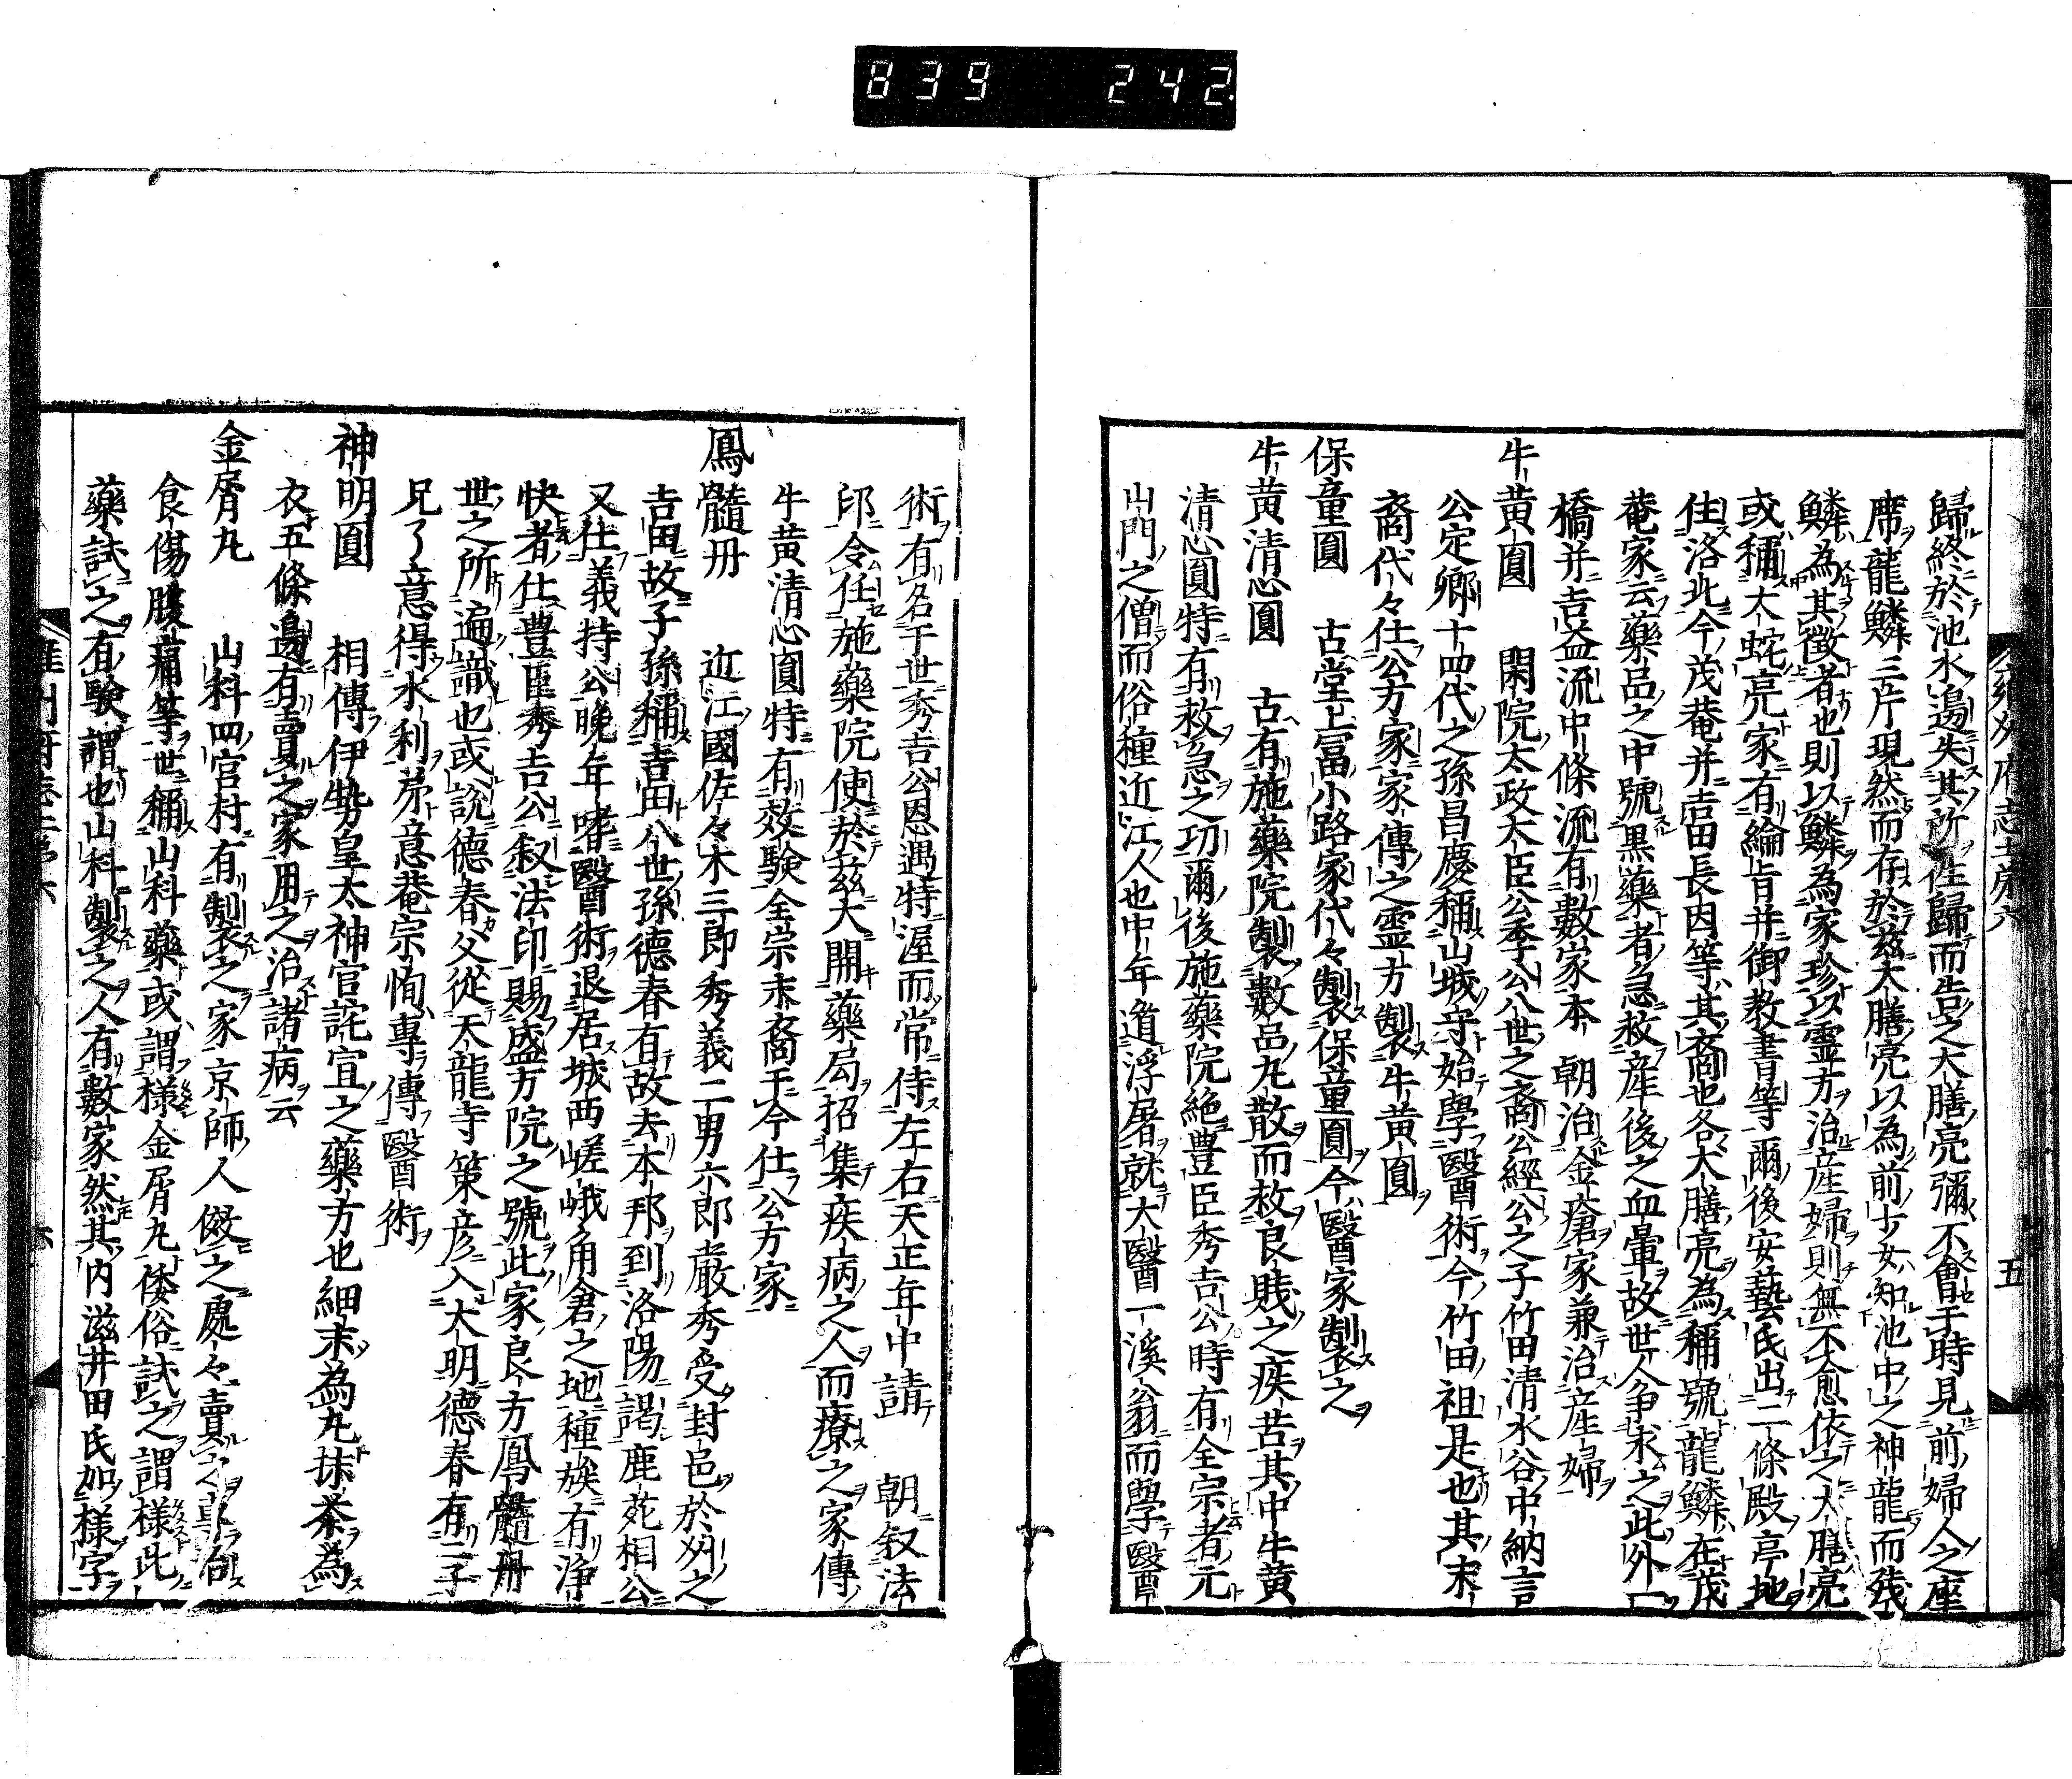 839 242
歸終於池水邊失其所在歸而告之大膳亮彌不會于時見前婦人之座
席龍鱗三片現然而存於茲大膳亮以為前少女知池中之神龍而殘
鱗為其徴者也則以鱗為家珍以霊方治産婦則無不愈依之大膳亮
或稱大蛇亮家有綸旨并御教書等爾後安藝氏出二條殿亭地
住洛北今茂菴并吉田長因等其裔也各大膳亮為稱號龍鱗在茂
菴家云藥品之中號黒藥者急救産後之血暈故世人争求之此外一
橋并吉益流中條流有數家本朝治金瘡家兼治産婦
牛黄圓 閑院太政大臣公季公八世之裔公經公之子竹田清水谷中納言
公定卿十四代之孫昌慶稱山城守始學醫術今竹田祖是也其末
裔代々仕公方家家傳之霊方製牛黄圓
保童圓 古堂上冨小路家代々製保童圓今醫家製之
牛黄清心圓 古有施藥院製數品丸散而救良賎之疾苦其中牛黄
清心圓特有救急之功爾後施藥院絶豊臣秀吉公時有全宗者元
山門之僧而俗種近江人也中年遁浮屠就大醫一溪翁而學醫
術有名于世秀吉公恩遇特渥而常侍左右天正年中請 朝叙法
印令任施藥院使於茲大開藥局招集疾病之人而療之家傳
牛黄清心圓特有效驗全宗末裔于今仕公方家
鳳髓丹 近江國佐々木三郎秀義二男六郎嚴秀受封邑於州之
吉田故子孫稱吉田八世孫德春有故去本邦到洛陽謁鹿苑相公
又仕義持公晩年嗜醫術退居城西嵯峨角倉之地種族有浄
快者仕豊臣秀吉公叙法印賜盛方院之號此家良方鳳髓丹
世之所遍識也或說德春父從天龍寺策彦入大明德春有二子
兄了意得水利弟意菴宗恂專傳醫術
神明圓 相傳伊勢皇太神官託宣之藥方也細末為丸抹茶為
衣五條邊有賣之家用之治諸病云
金屑丸 山科四宮村有製之家京師人傚之處々賣之專治
食傷腹痛等世稱山科藥或謂様金屑丸倭俗試之謂様此
藥試之有驗謂也山科製之人有數家然其内滋井田氏加様字